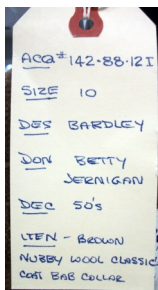 ACQ# 142.88.12I
SIZE 10
DES BARDLEY
DON BETTY
JERNIGAN
DEC 50's
ITEN - BROWN
NUBBY WOOL CLASSIC
COAT BAB COLLAR